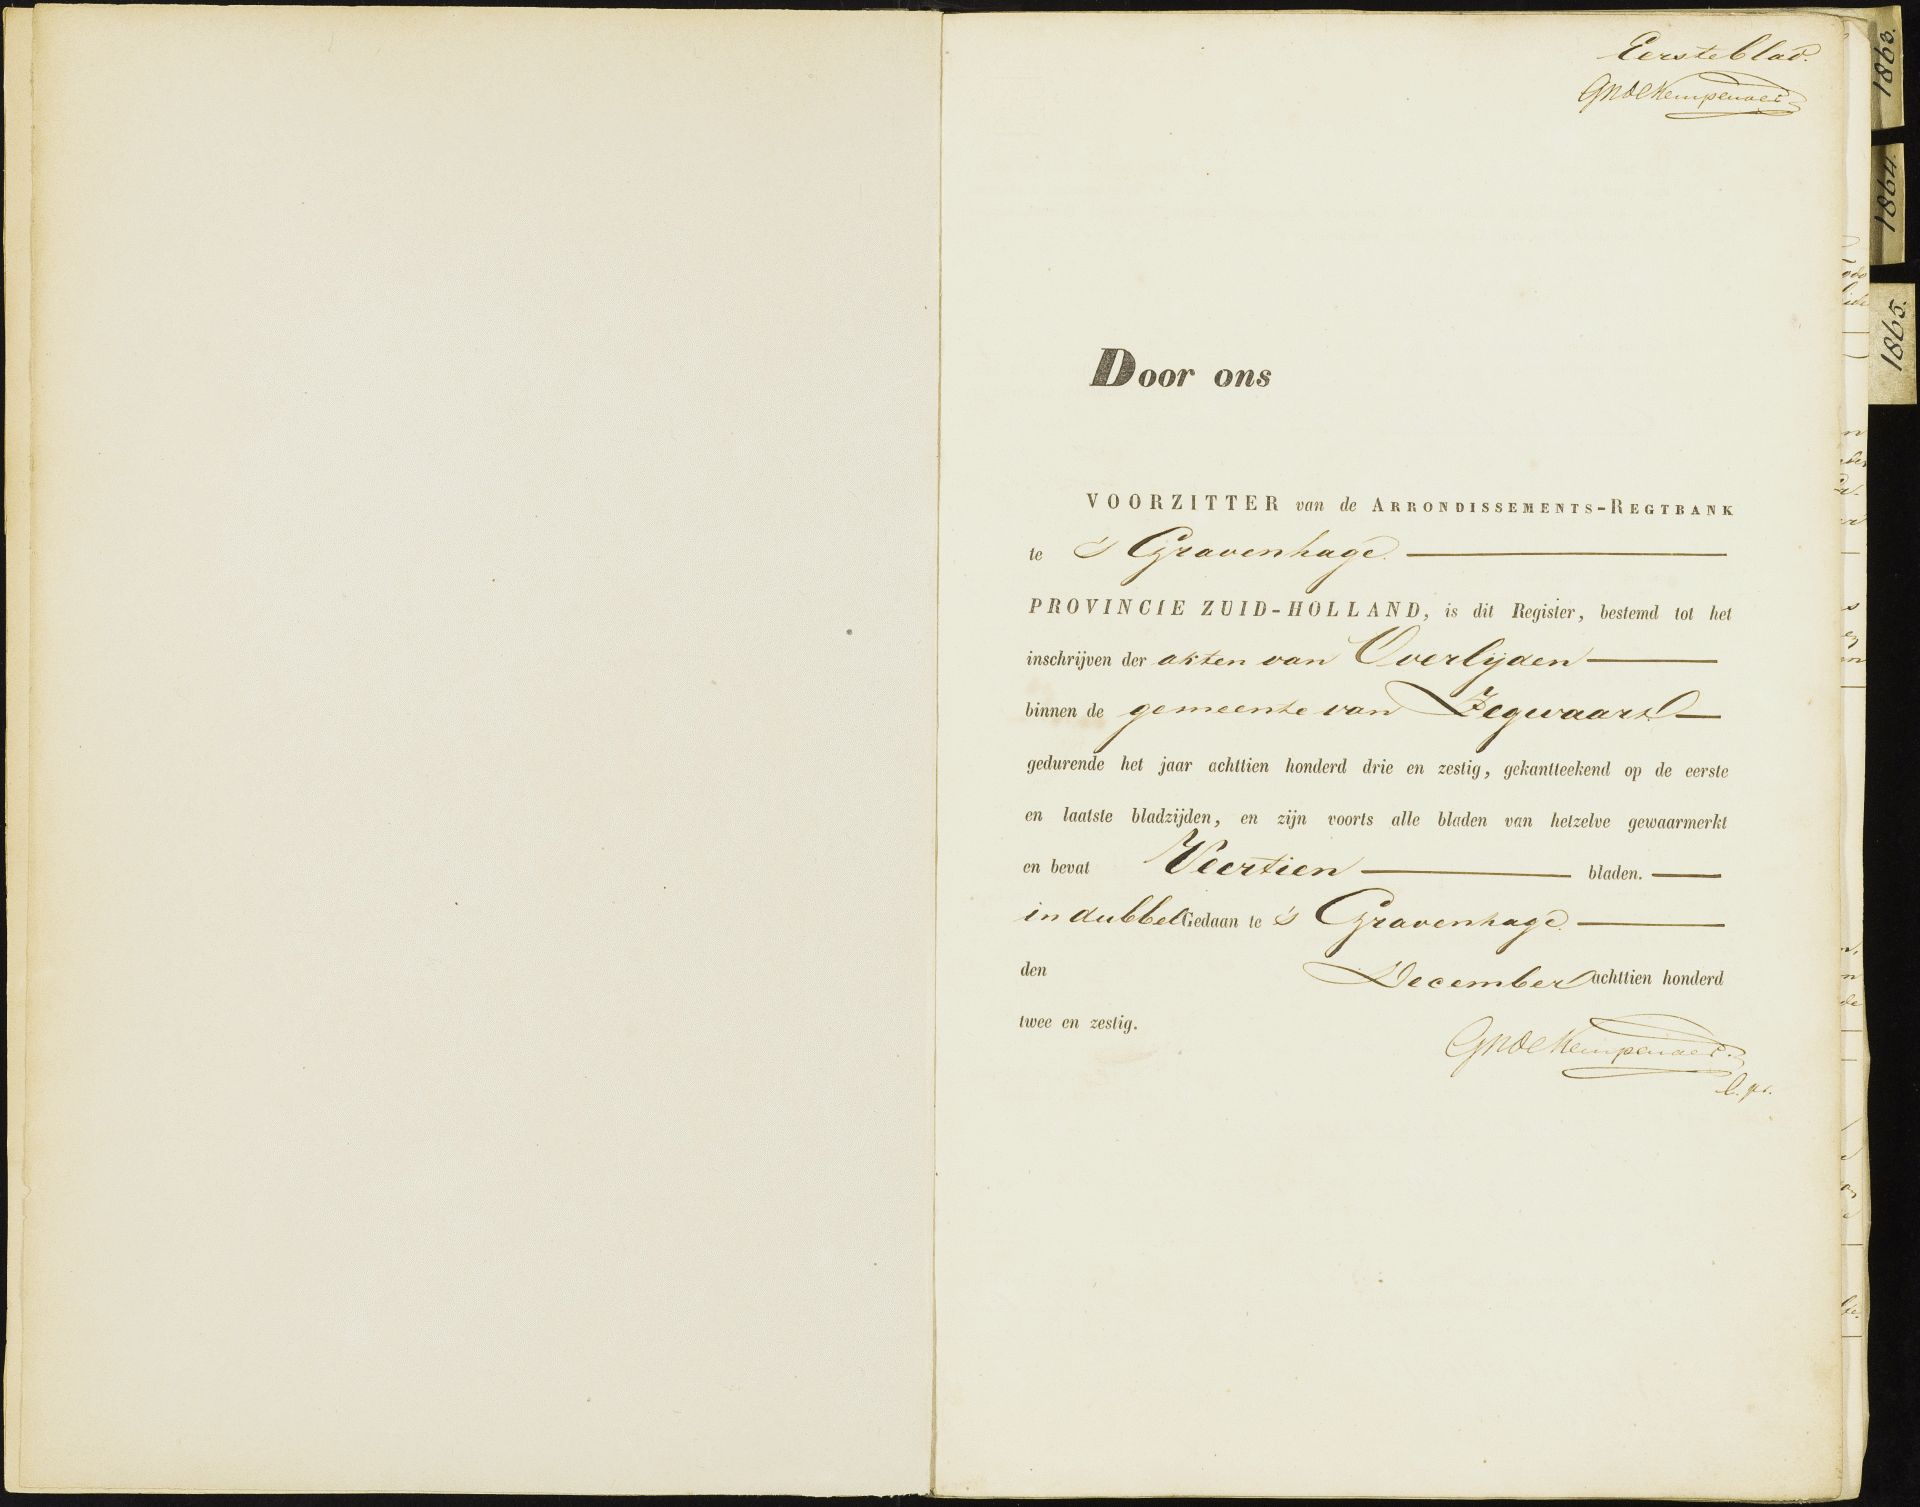 Eerste blad.
GNdeKempenaer
Door ons
VOORZITTER van de ARRONDISSEMENTS-REGTBANK
te 's Gravenhage.
PROVINCIE ZUID-HOLLAND, is dit Register, bestemd tot het
inschrijven der akten van Overlijden
binnen de gemeente van Zegwaart
gedurende het jaar achttien honderd drie en zestig, gekantteekend op de eerste
en laatste bladzijden, en zijn voorts alle bladen van hetzelve gewaarmerkt
en bevat Veertien bladen.
in dubbel Gedaan te 's Gravenhage.
den December achttien honderd
twee en zestig.
GNdeKempenaer
1863.
1864.
1865.